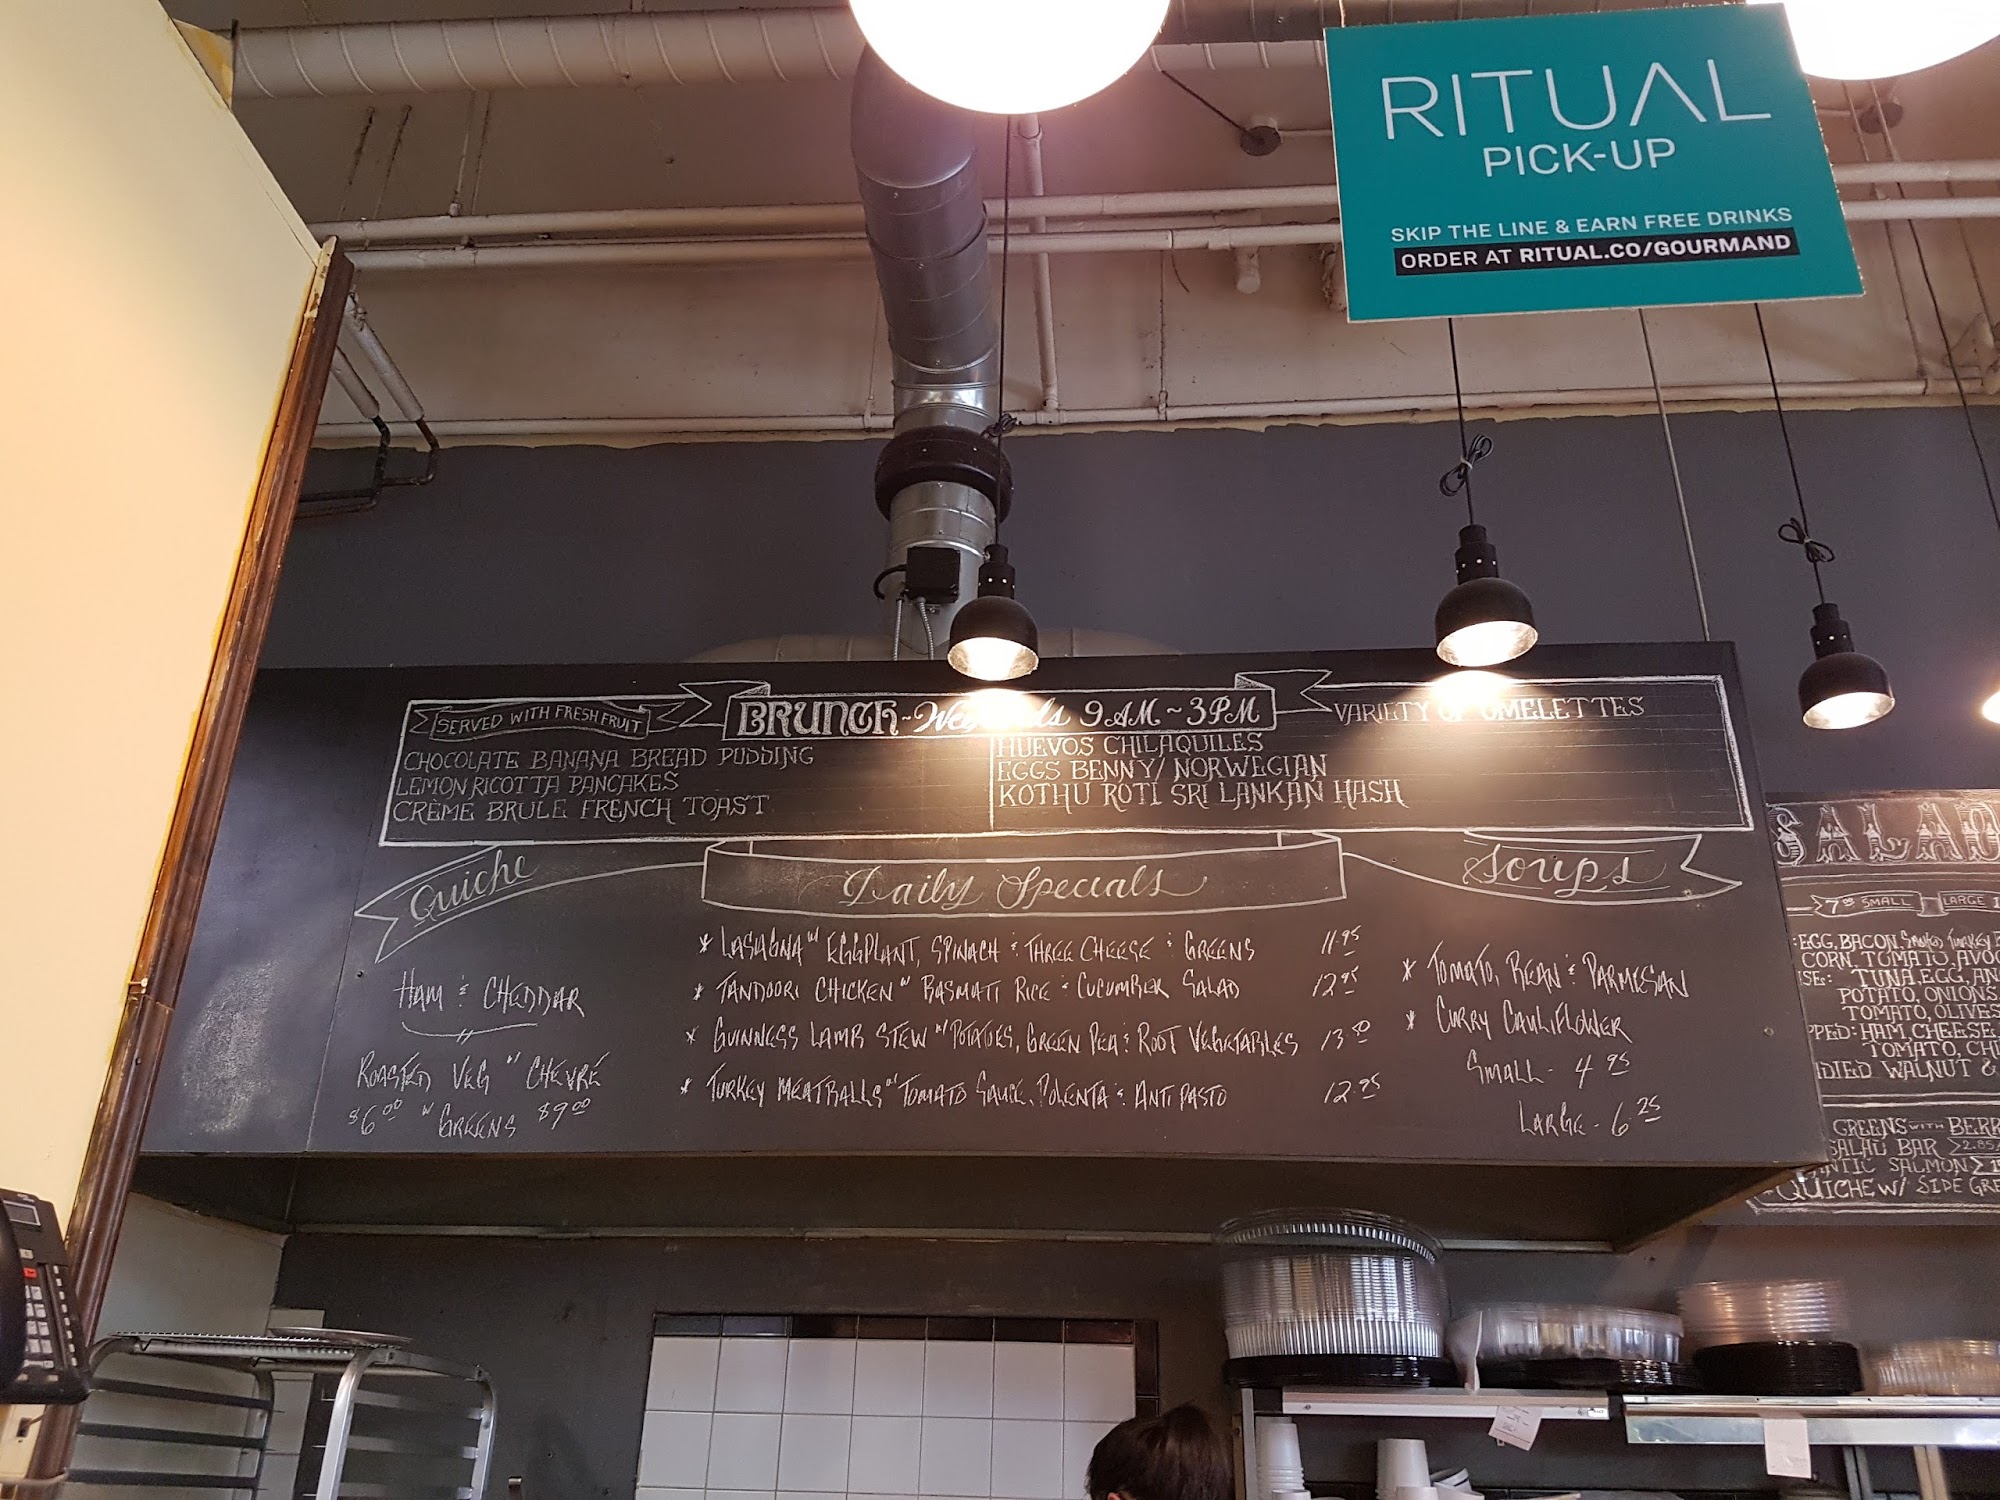 RITUAL
PICK-UP
SKIP THE LINE & EARN FREE DRINKS
ORDER AT RITUAL.CO/GOURMAND
SERVED WITH FRESH FRUIT
BRUNCH ~ Weekends 9AM ~ 3PM
CHOCOLATE BANANA BREAD PUDDING
LEMON RICOTTA PANCAKES
CRÈME BRULE FRENCH TOAST
HUEVOS CHILAQUILES
EGGS BENNY/ NORWEGIAN
KOTHU ROTI SRI LANKAN HASH
VARIETY OF OMELETTES
Quiche
HAM & CHEDDAR
ROASTED VEG W/ CHEVRÉ
$6.00 W GREENS $9.00
Daily Specials
* LASAGNA W/ EGGPLANT, SPINACH & THREE CHEESE & GREENS 11.95
* TANDOORI CHICKEN W/ BASMATI RICE & CUCUMBER SALAD 12.95
* GUINNESS LAMB STEW W/ POTATOES, GREEN PEA & ROOT VEGETABLES 13.50
* TURKEY MEATBALLS W/ TOMATO SAUCE, POLENTA & ANTIPASTO 12.95
Soups
* TOMATO, BEAN & PARMESAN
* CURRY CAULIFLOWER
SMALL - 4.95
LARGE - 6.25
SALAD
SMALL LARGE
EGG, BACON, SMOKED TURKEY
CORN, TOMATO, AVOC
SE: TUNA, EGG, AN
POTATO, ONIONS
TOMATO, OLIVES
PPED: HAM, CHEESE,
TOMATO, CHI
DIED WALNUT &
GREENS WITH BERR
SALAD BAR 2.85/
ANTIC SALMON
QUICHE W/ SIDE GRE